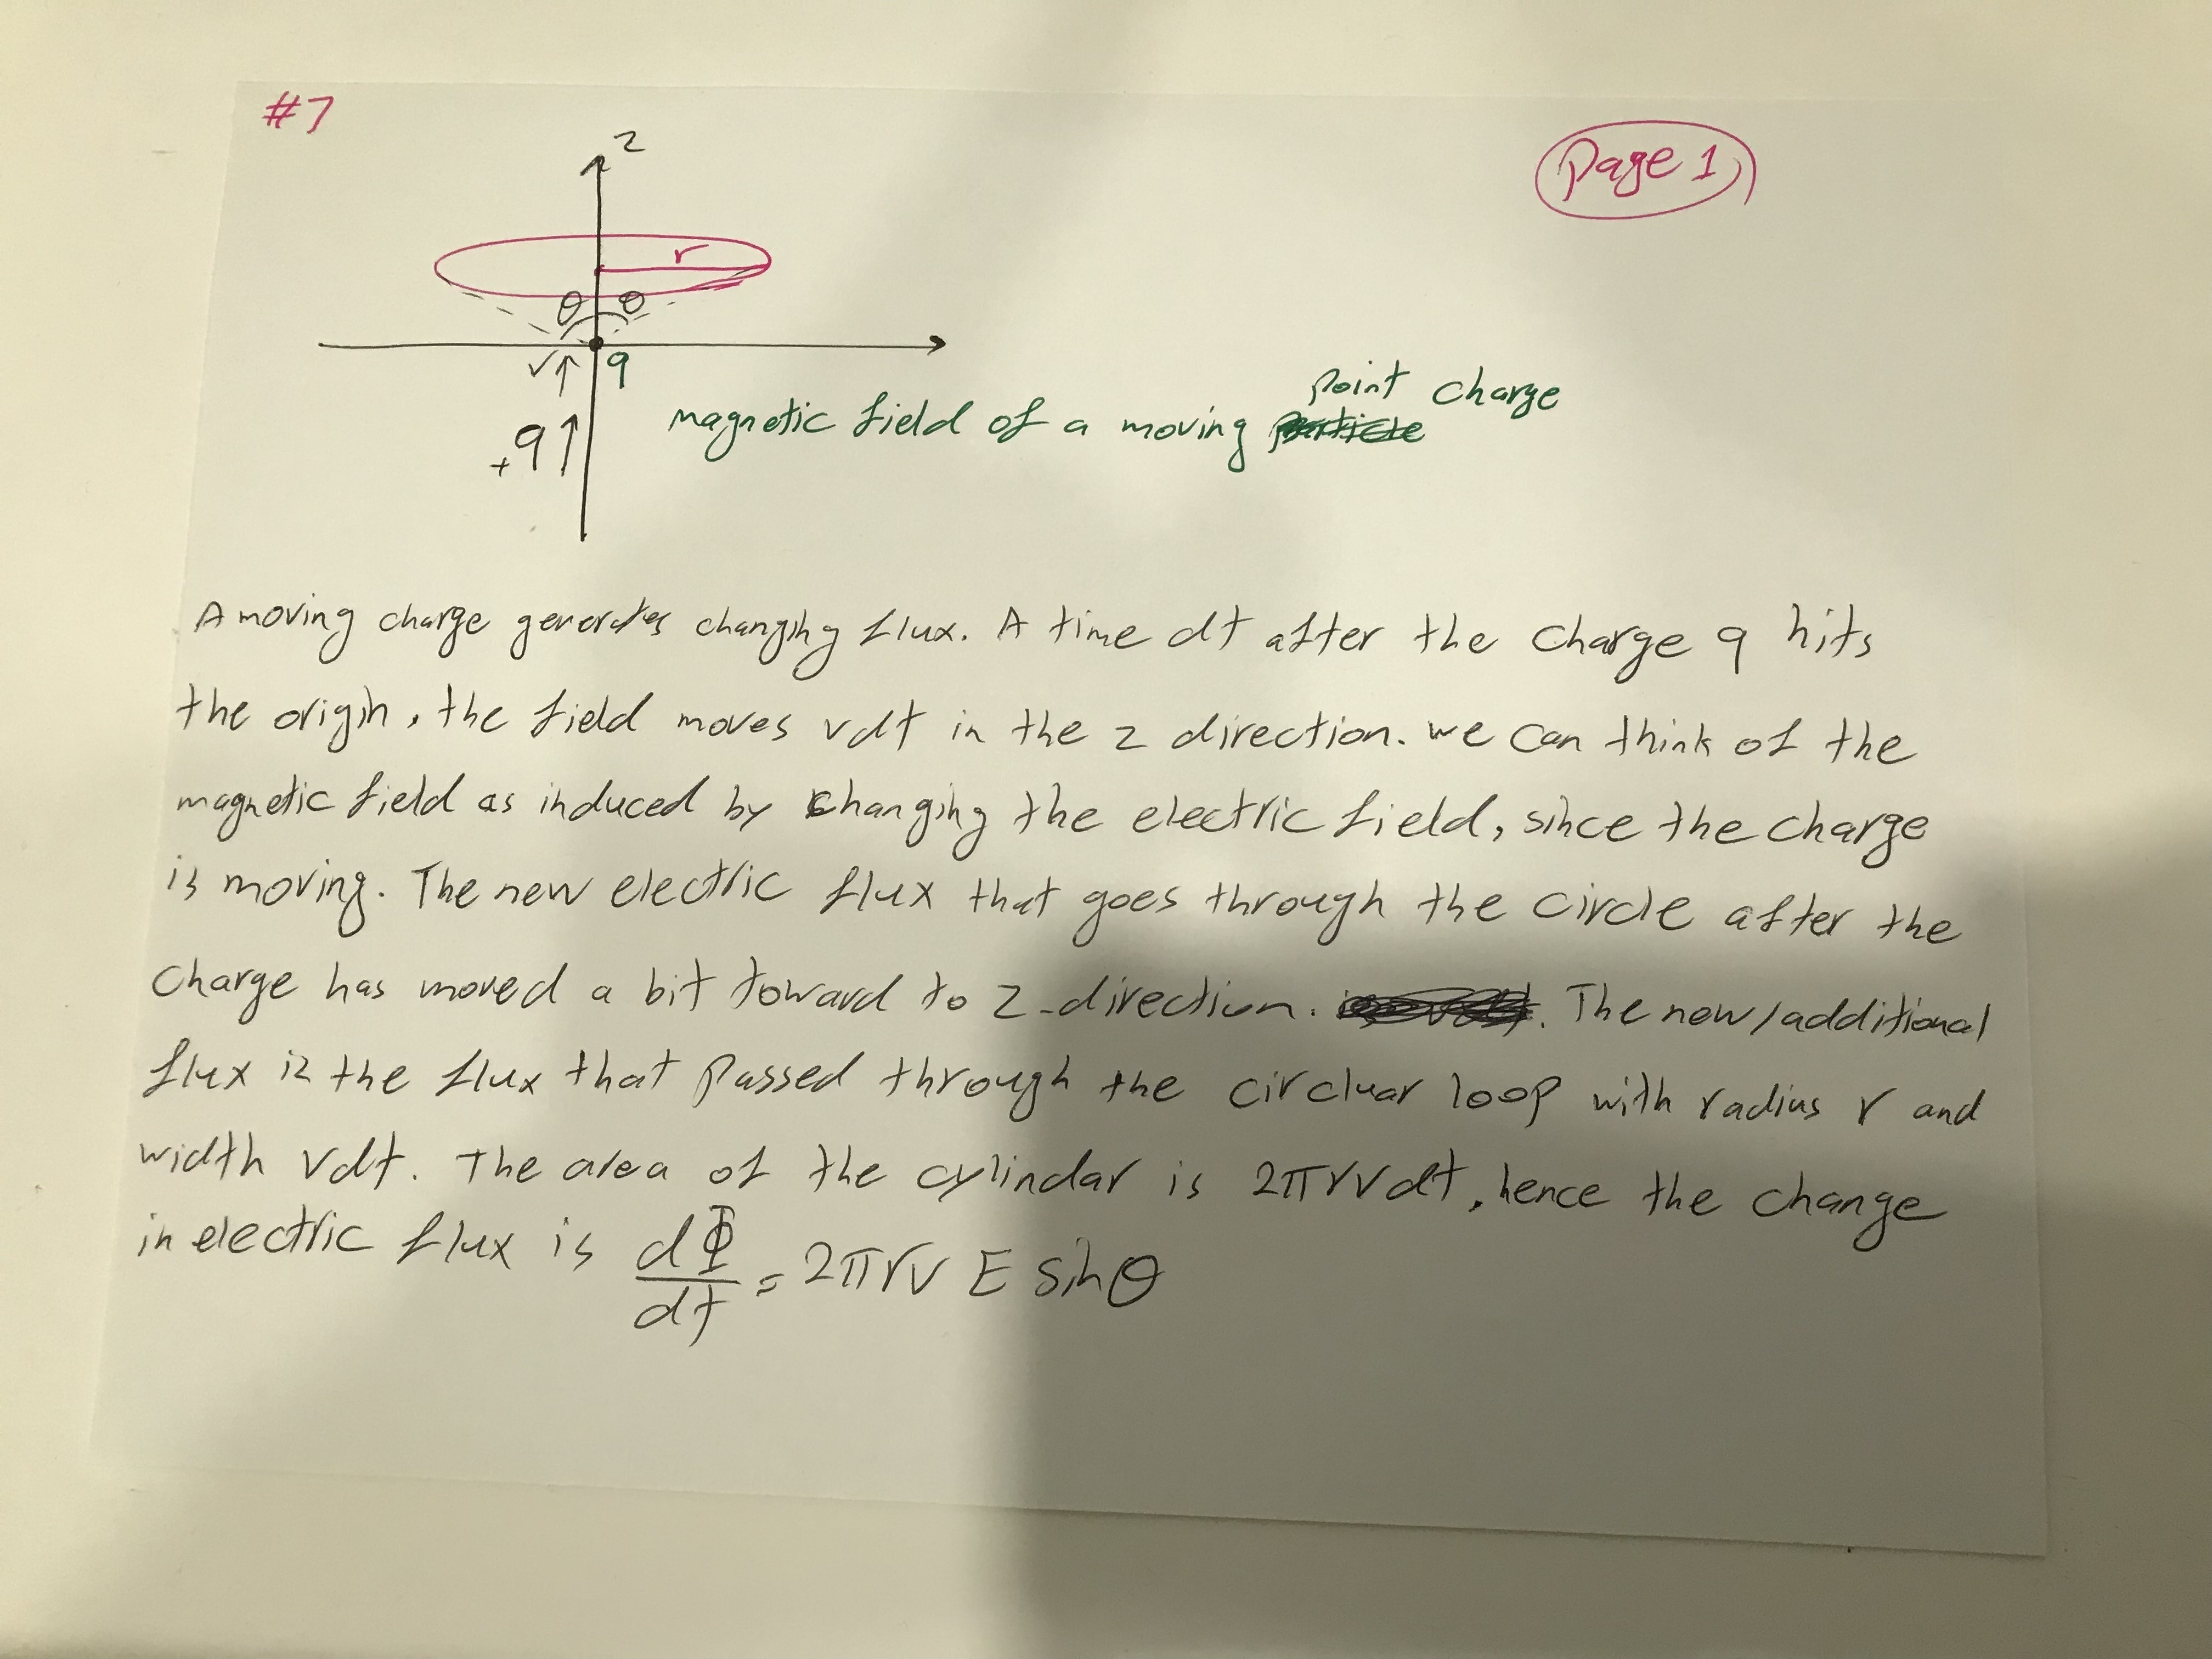 #7
Page 1
z
r
θ θ
v↑ q
+q↑
magnetic field of a moving point charge
A moving charge generates changing flux. A time dt after the charge q hits
the origin, the field moves vdt in the z direction. we can think of the
magnetic field as induced by changing the electric field, since the charge
is moving. The new electric flux that goes through the circle after the
charge has moved a bit toward to z-direction. The new/additional
flux is the flux that passed through the circluar loop with radius r and
width vdt. The area of the cylindar is 2πrvdt, hence the change
in electric flux is dΦ/dt = 2πrv E sinθ